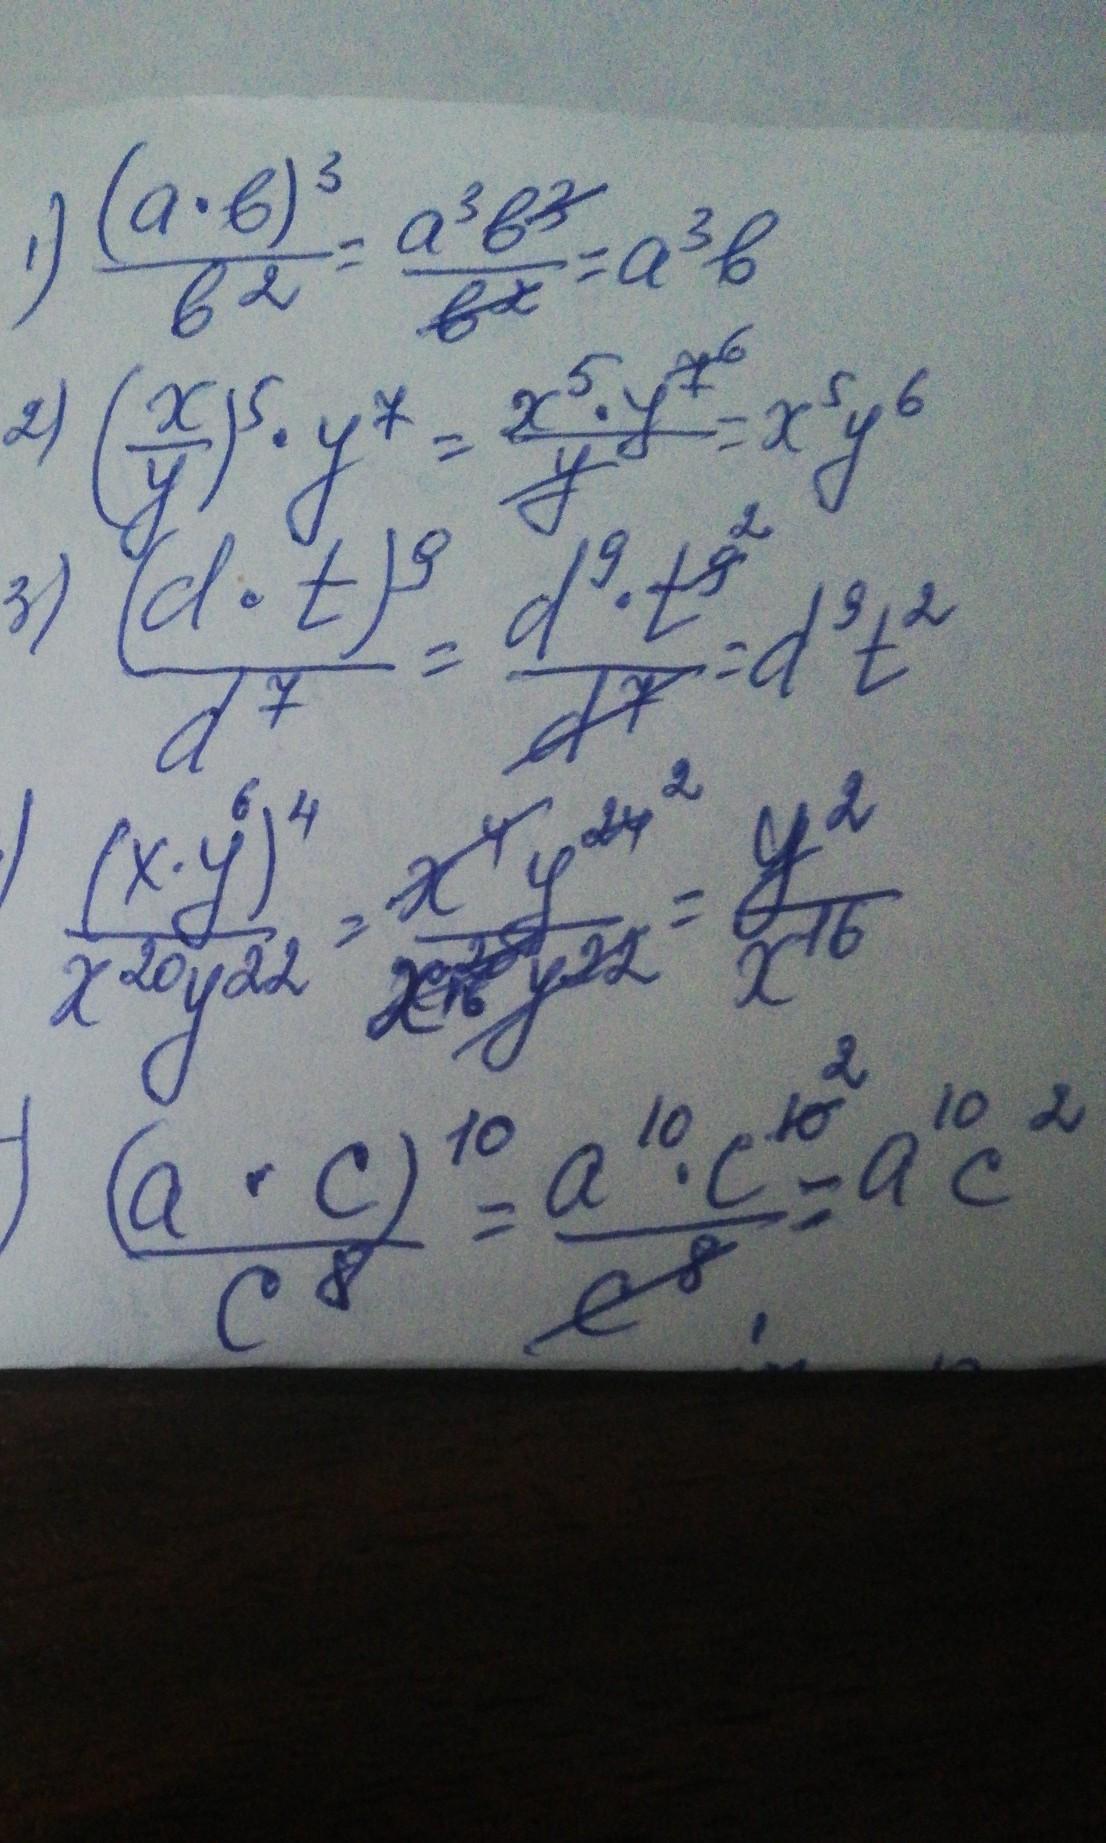 1) (a·b)³/b² = a³b³/b² = a³b
2) (x/y)⁵·y⁷ = x⁵·y⁷ ⁶/y = x⁵y⁶
3) (d·t)⁹/d⁷ = d⁹·t⁹ ²/d⁷ = d⁹t²
) (x·y⁶)⁴/x²⁰y²² = x⁴y²⁴ ²/x²⁰ ¹⁶y²² = y²/x¹⁶
) (a·c)¹⁰/c⁸ = a¹⁰·c¹⁰ ²/c⁸ = a¹⁰c²